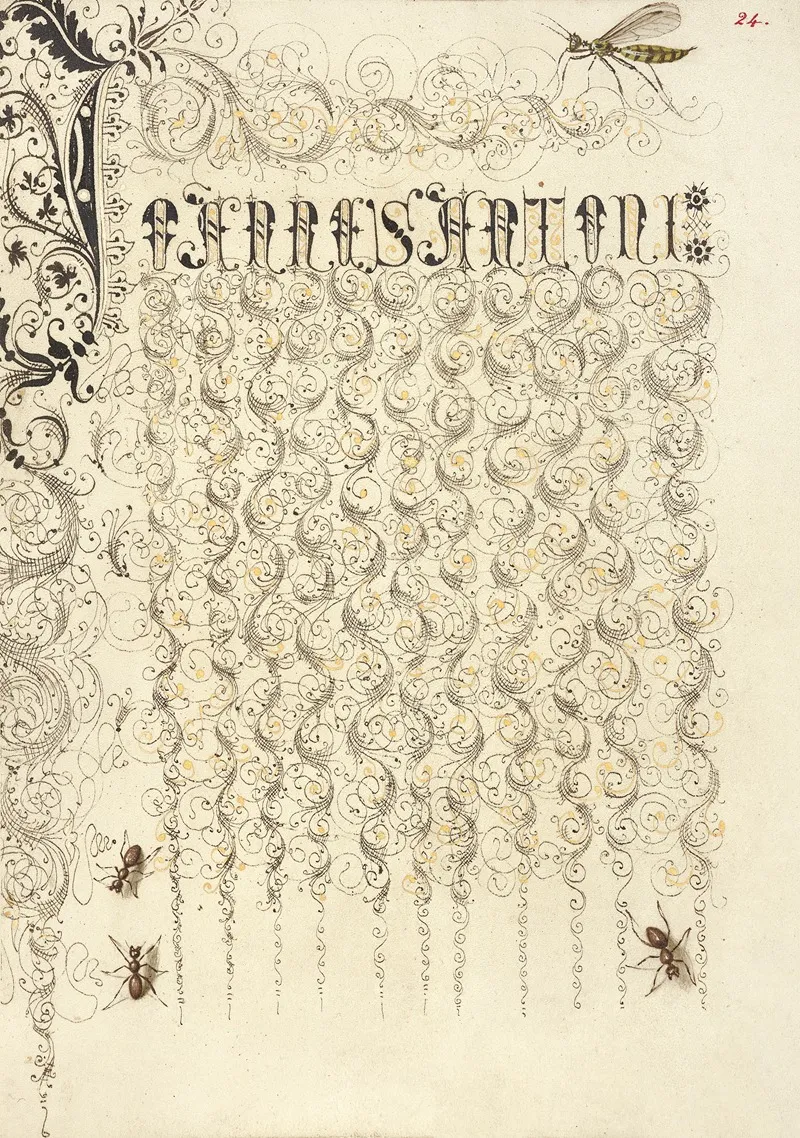 24.
IOANNES ANTONI: